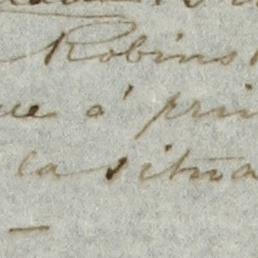 Robins
ue á pri
la situa